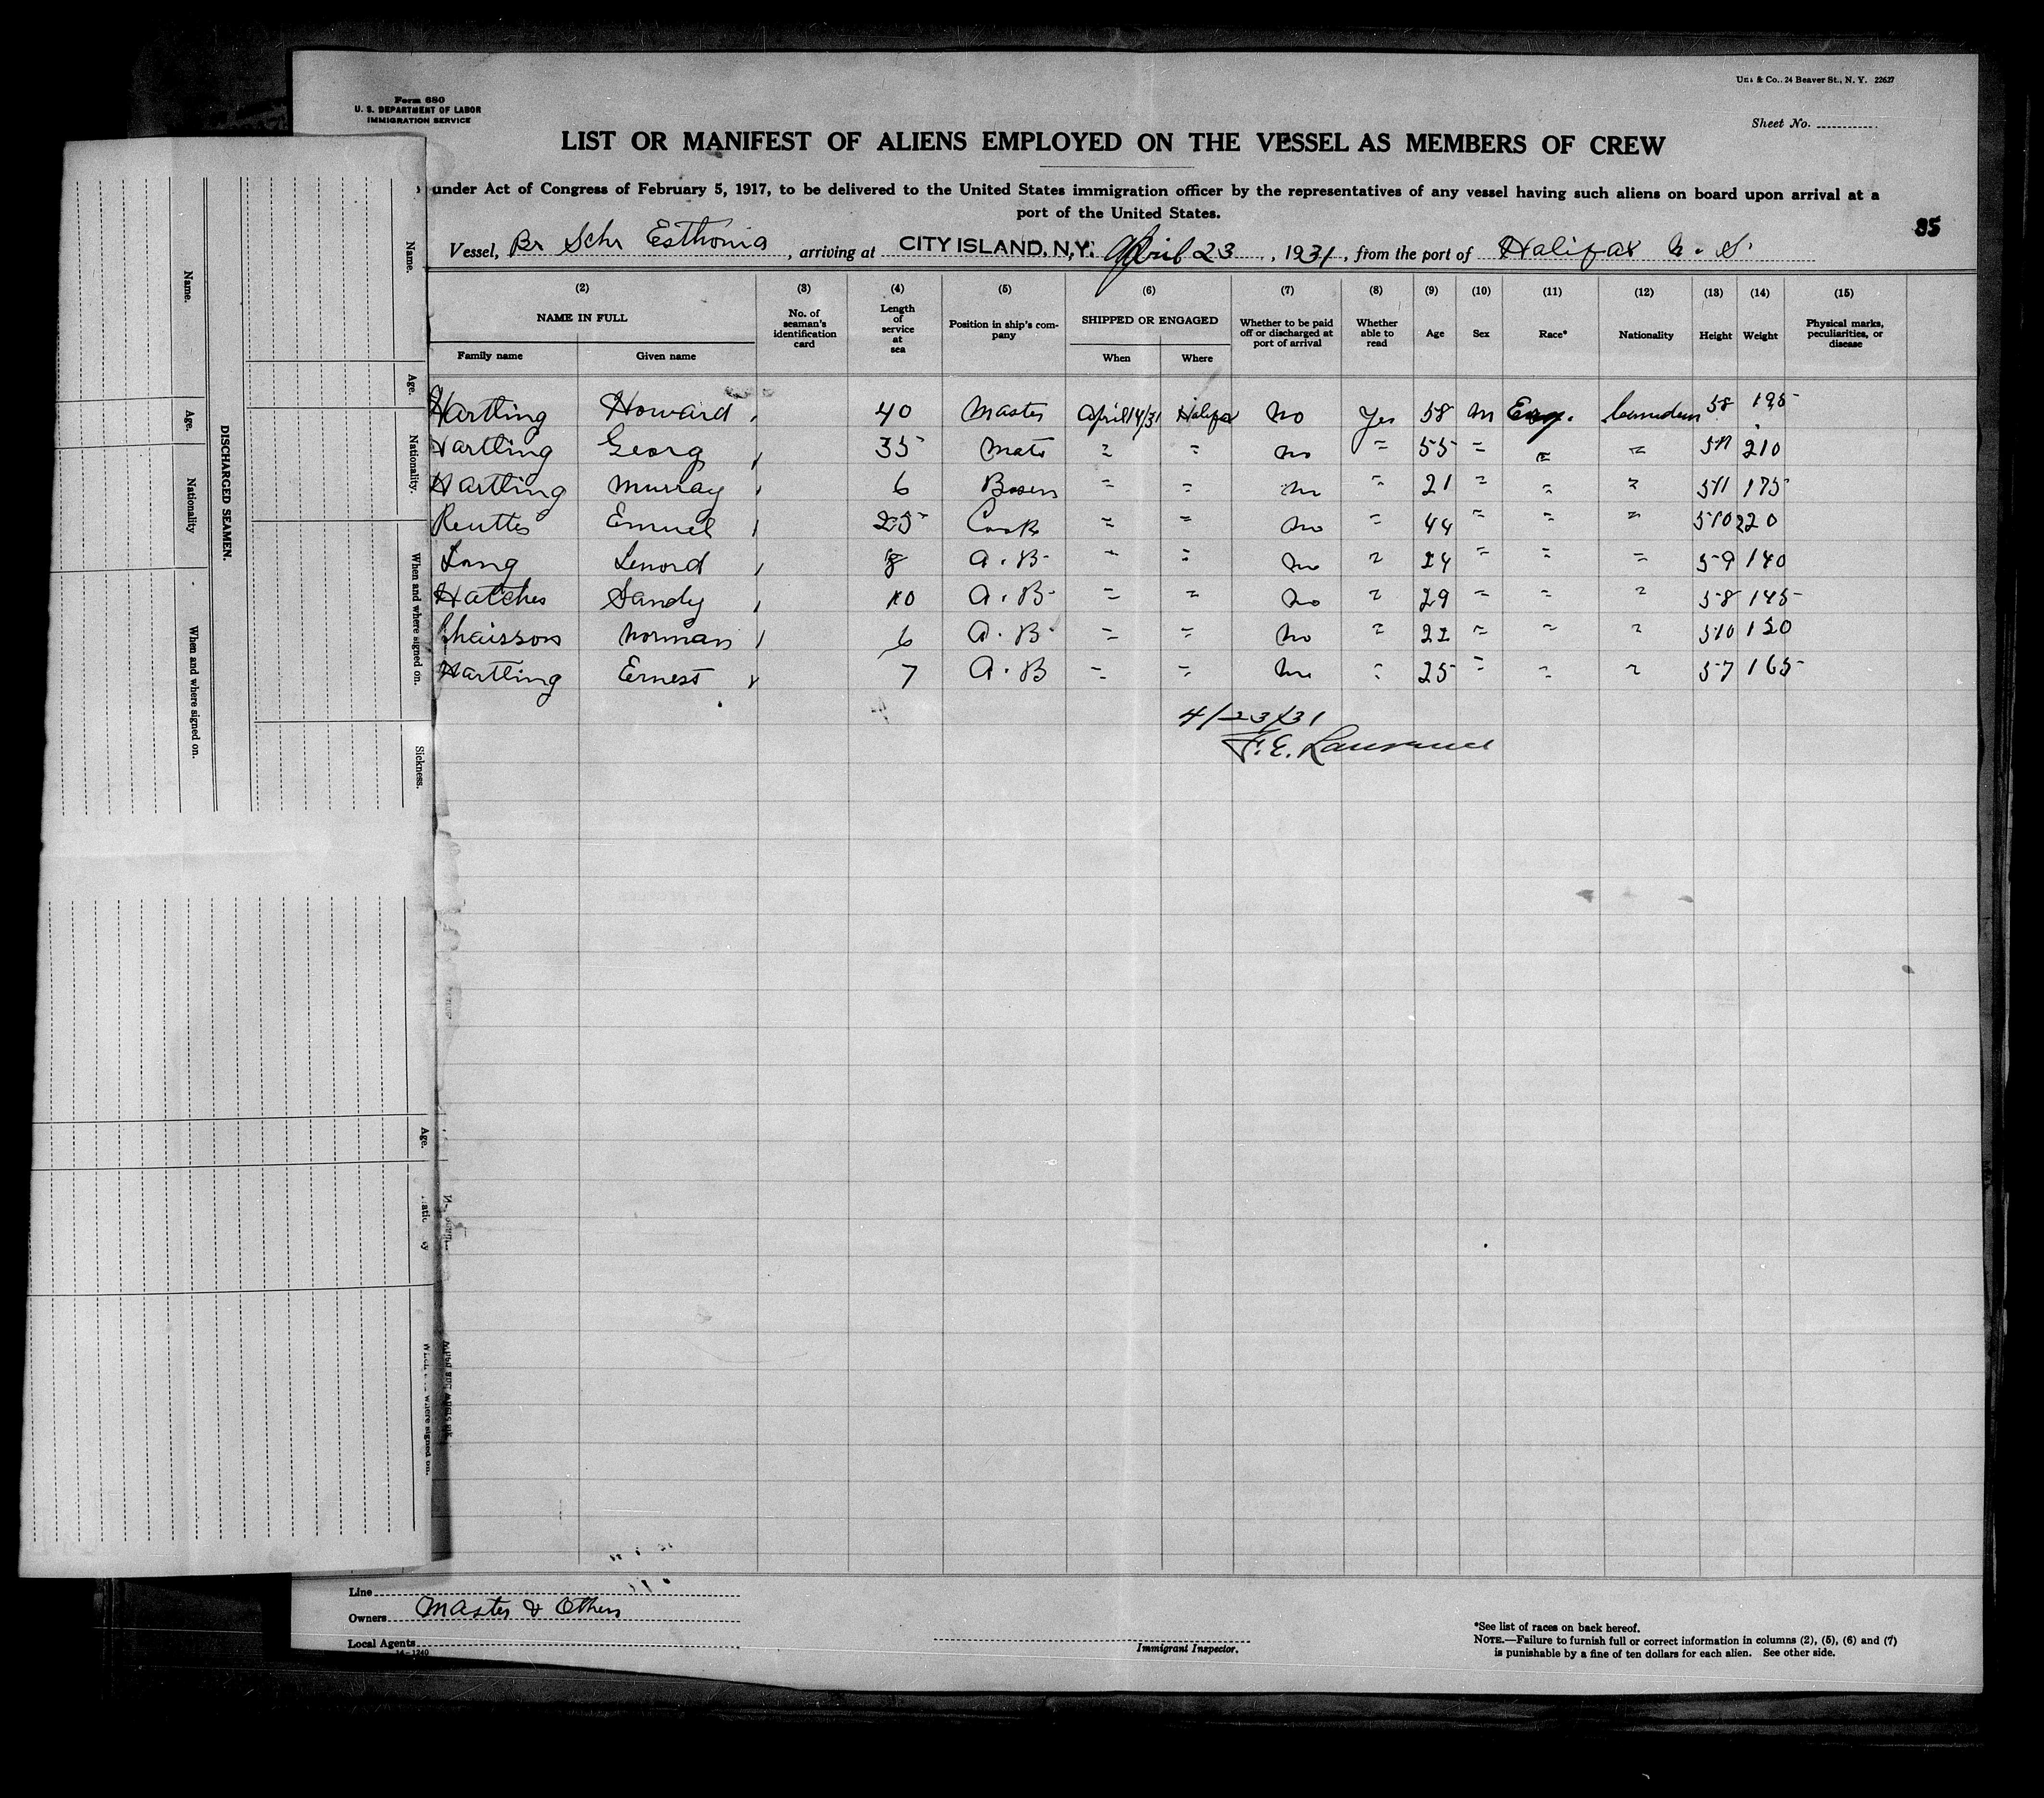 Form 680
U. S. DEPARTMENT OF LABOR
IMMIGRATION SERVICE
& Co., 24 Beaver St., N. Y. 22627
Sheet No.
LIST OR MANIFEST OF ALIENS EMPLOYED ON THE VESSEL AS MEMBERS OF CREW
under Act of Congress of February 5, 1917, to be delivered to the United States immigration officer by the representatives of any vessel having such aliens on board upon arrival at a
port of the United States.
85
Vessel, Br Schr Esthonia, arriving at CITY ISLAND, N.Y. April 23, 1931, from the port of Halifax N. S.
(2) (3) (4) (5) (6) (7) (8) (9) (10) (11) (12) (13) (14) (15)
NAME IN FULL No. of seaman's identification card Length of service at sea Position in ship's company SHIPPED OR ENGAGED Whether to be paid off or discharged at port of arrival Whether able to read Age Sex Race* Nationality Height Weight Physical marks, peculiarities, or disease
Family name Given name When Where
Hartling Howard 40 Master April 14/31 Halifax No Yes 58 M Eng. Canadian 58 195
Hartling Georg 35 Mate " " No " 55 " " " 511 210
Hartling Murray 6 Bosen " " No " 21 " " " 511 175
Emuel 25 Cook " " No " 44 " " " 510 220
Long Lenord 8 A. B. " " No " 24 " " " 59 140
Hatches Sandy 10 A. B. " " No " 29 " " " 58 145
Chaisson Norman 6 A. B. " " No " 22 " " " 510 150
Hartling Ernest 7 A. B " " No " 25 " " " 57 165
4/23/31
F. E. Lawrence
Name. Age. Nationality. When and where signed on. Sickness.
DISCHARGED SEAMEN.
Name. Age. Nationality When and where signed on.
Age.
where signed on.
Line
Owners Master & Others
Local Agents
14-1240
Immigrant Inspector.
*See list of races on back hereof.
NOTE.—Failure to furnish full or correct information in columns (2), (5), (6) and (7)
is punishable by a fine of ten dollars for each alien. See other side.